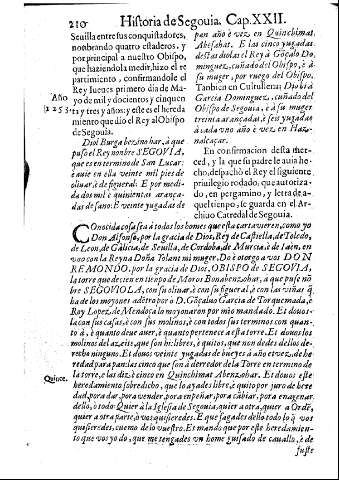 210 Historia de Segouia. Cap. XXII.
Seuilla entre sus conquistadores,
nonbrando quatro estaderos, y
por principal a nuestro Obispo,
que haziendola medir, hizo el re
partimiento, confirmandole el
Rey Iueues primero dia de Ma-
Año
yo de mil y docientos y cinquen
1253.
ta y tres y años; y este es el hereda
miento que dio el Rey al Obispo
de Segouia.
Diol Burga bezinohar, à que
puso el Rey nonbre SEGOVIA,
que es en termino de San Lucar:
è auie en ella veinte mil pies de
oliuar, è de figueral: E por medi-
da dos mil è quinientas aranças-
das de sano: E veinte yugadas de
pan año è vez en Quinchimat
Abensahat. E las cinco yugadas
destas diolas el Rey à Gõçalo Do
minguez, cuñado del Obispo, è à
su muger, por ruego del Obispo.
Tanbien en Cutrullena; Diol à
Garcia Dominguez, cuñado del
Obispo de Segouia, è à su muger
treinta arançadas, è seis yugadas
à cada vno año è vez en Haz-
nalcaçar.
En confirmacion desta mer-
ced, y la que su padre le auia he-
cho, despachò el Rey el siguiente
priuilegio rodado, que autoriza-
do, en pergamino, y letra de a-
quel tienpo, se guarda en el Ar-
chiuo Catredal de Segouia.
COnocida cosa sea à todos los homes que esta carta vieren, como yo
Don Alfonso, por la gracia de Dios, Rey de Castiella, de Toledo,
de Leon, de Galicia, de Seuilla, de Cordoba, de Murcia è de Iaèn, en
vno con la Reyna Doña Yolant mi muger. Do è otorgo à vos DON
REMONDO, por la gracia de Dios, OBISPO de SEGOVIA,
la torre que dicen en tienpo de Moros Bonabenzohar, à que puse nõ
bre SEGOVIOLA, con su oliuar, è con su figueral, è con las viñas q̃
ha de los moyones adẽtro por à D. Gõçaluo Garcia de Torquemada, è
Roy Lopez, de Mendoça lo moyonaron por mio mandado. Et douos-
la con sus casas, è con sus molinos, è con todos sus terminos con quan-
to à, è quanto deue auer, è quanto pertenece à esta torre. Et douos los
molinos del azeite, que son hi: libres, è quitos, que non dedes dellos de-
recho ninguno. Et douos veinte yugadas de bueyes à año et vez, de he-
redad para pan: las cinco que son à derredor de la Torre en termino de
la torre, è las diz è cinco en Quinchimat Abenzahat. Et douos este
Quince.
heredamiento sobredicho, que lo ayades libre, è quito por juro de here-
dad, para dar, por a vender, por a empeñar, por a cãbiar, por a enagenar
dello, ò todo: Quier à la Iglesia de Segouia, quier a otra, quier a Ordẽ,
quier a otra parte, ò vos quisieredes. E que fagades dello todo lo q̃ vos
quisieredes, cuemo de lo vuestro. Et mando que por este heredamien-
to que vos yo do, que me tengades vn home guisado de cauallo, è de
fuste